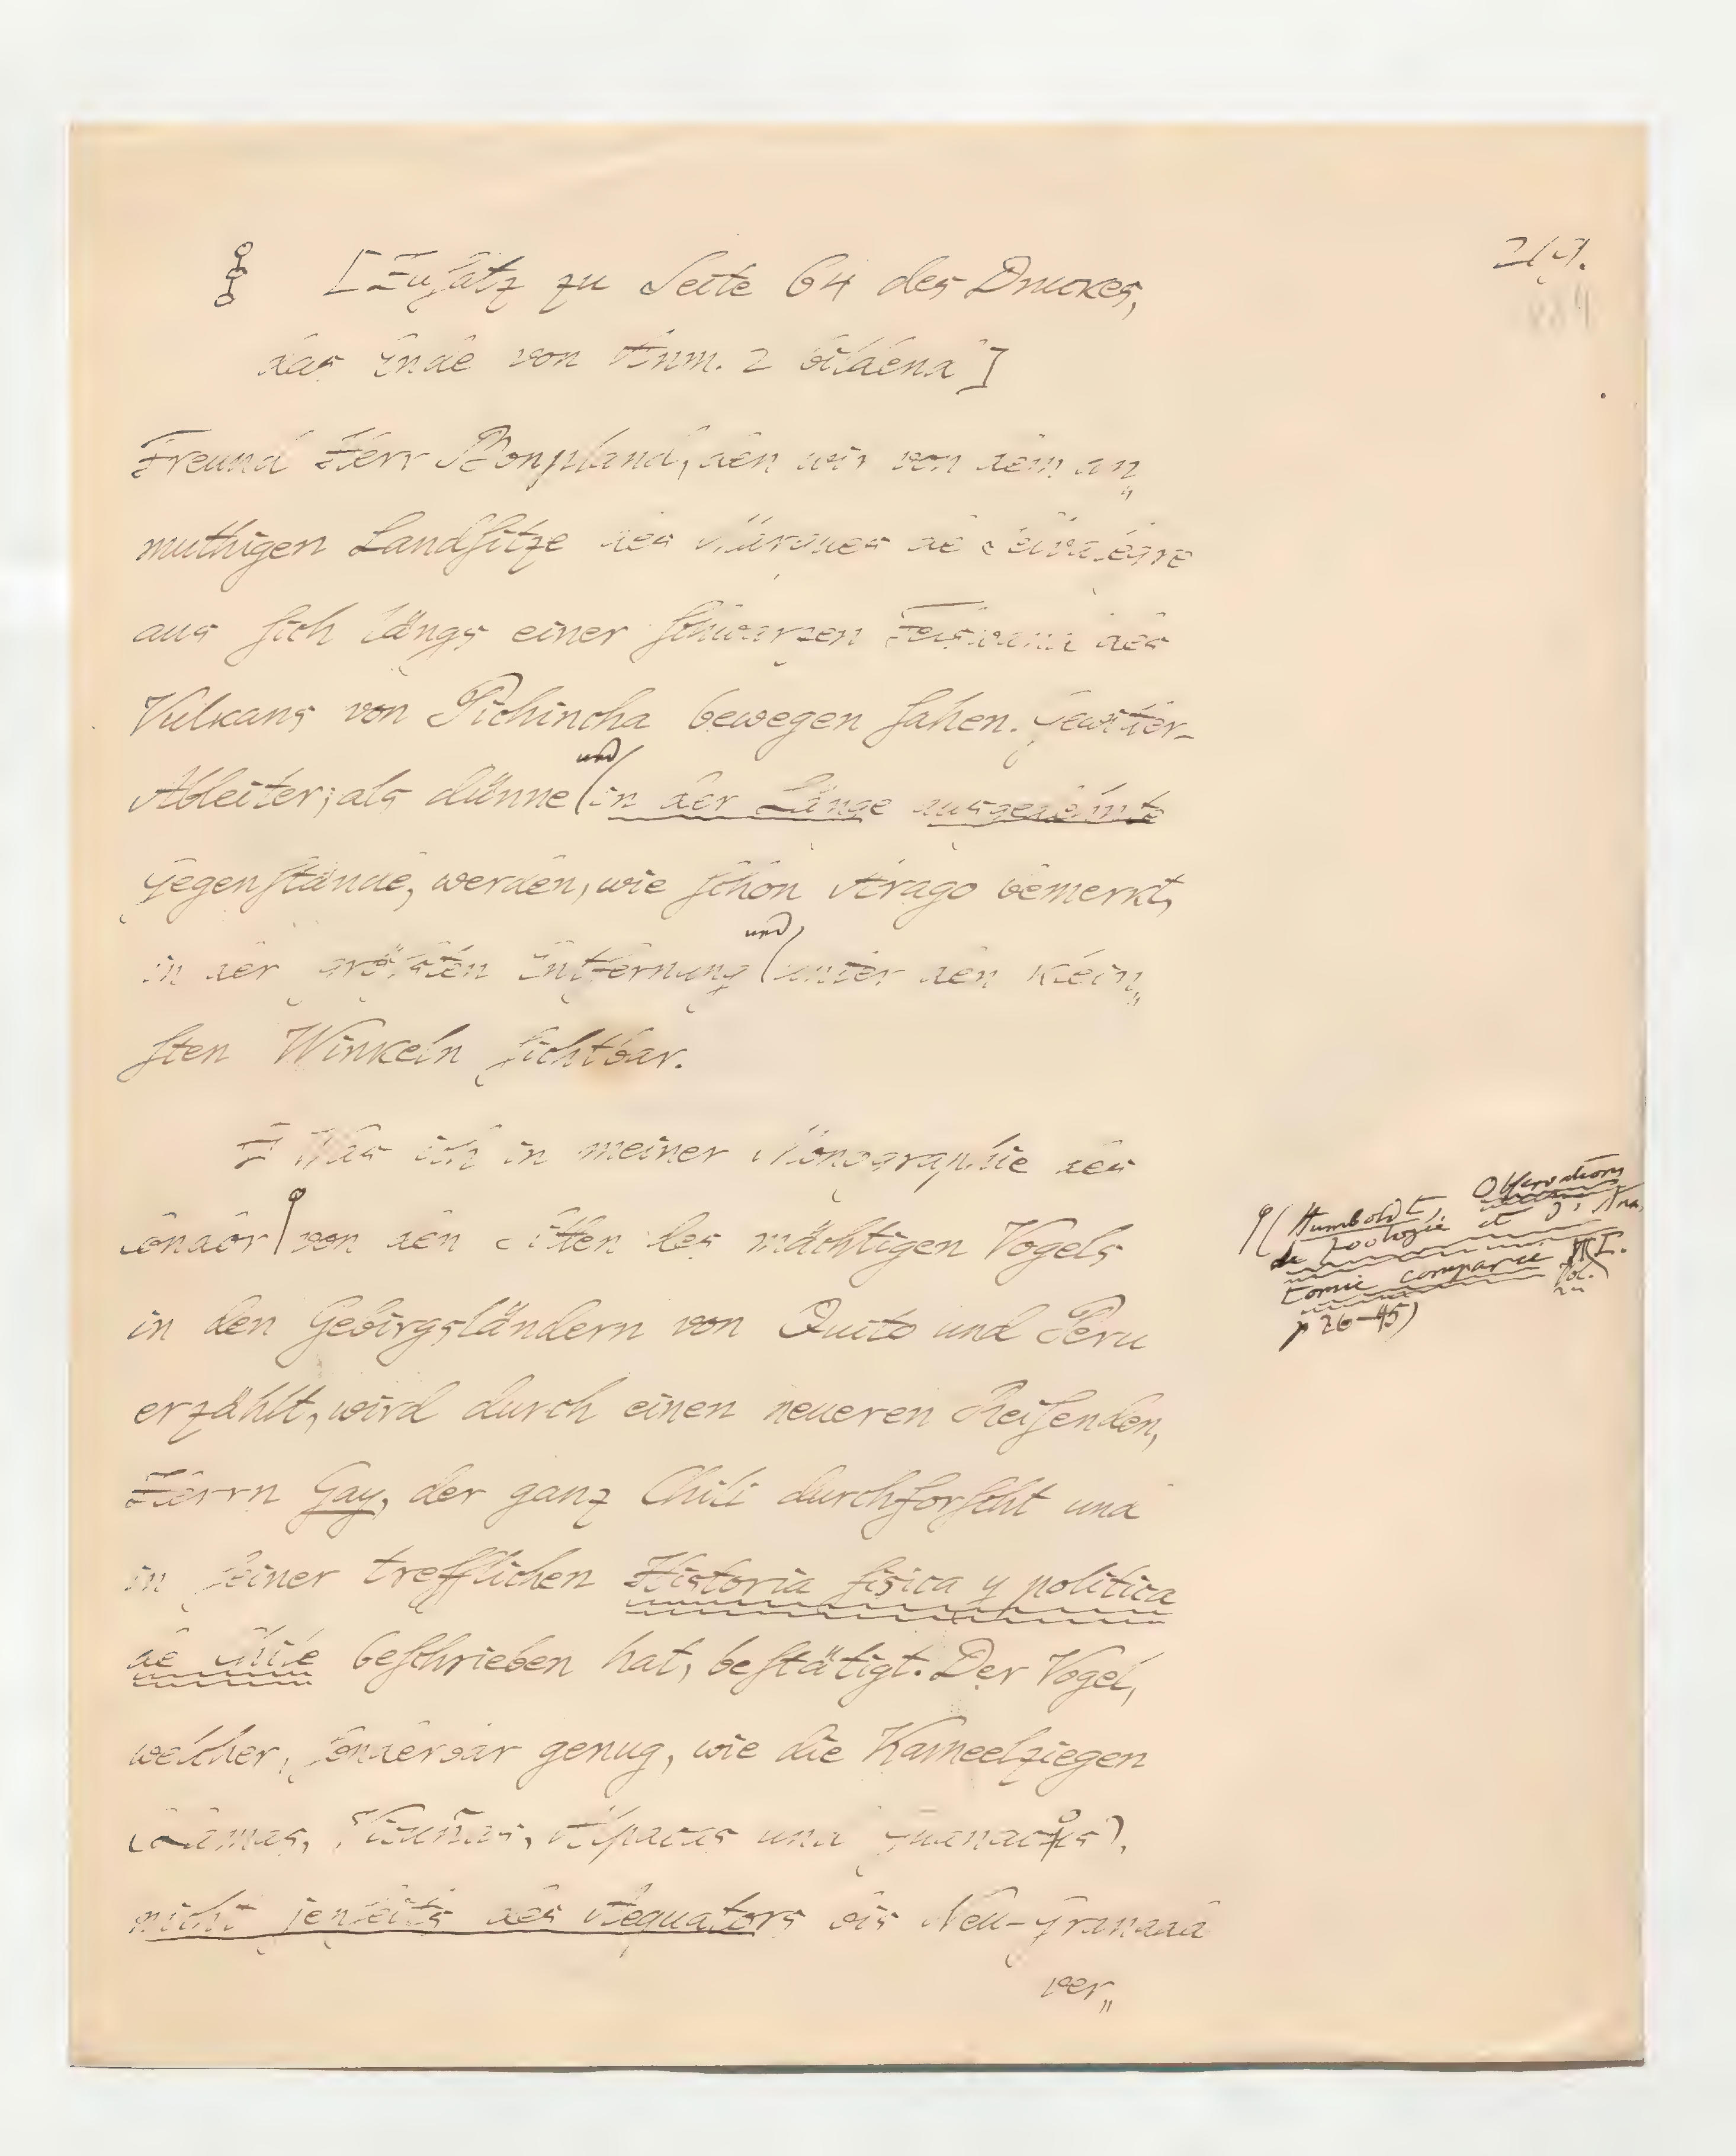 [Zuſatz zu Seite 64 des Druckes,
das Ende von Anm. 2 bildend]
Freund Herr Bonpland, den wir von dem an„
muthigen Landſitze des Marques de Selvalegre
aus ſich längs einer ſchwarzen Felswand des
Vulkans von Pichincha bewegen ſahen. Gewitter-
Ableiter, als dünne und in der Länge ausgedehnte
Gegenſtände, werden, wie ſchon Arago bemerkt,
in der größten Entfernung und unter den klein„
ſten Winkeln ſichtbar.
Was ich in meiner Monographie des
Condor von den Sitten des mächtigen Vogels
(Humboldt, Obſervations
de Zoologie et d'Ana
tomie comparée Vol. I.
p 26–45)
in den Gebirgsländern von Quito und Peru
erzählt, wird durch einen neueren Reiſenden,
Herrn Gay, der ganz Chili durchforſcht und
in ſeiner trefflichen Historia fisica y politica
de Chile beſchrieben hat, beſtätigt. Der Vogel,
welcher, ſonderbar genug, wie die Kameelziegen
(Lamas, Vicuñas, Alpacas und Guanacos),
nicht jenſeits des Aequators bis Neu-Granada
ver„